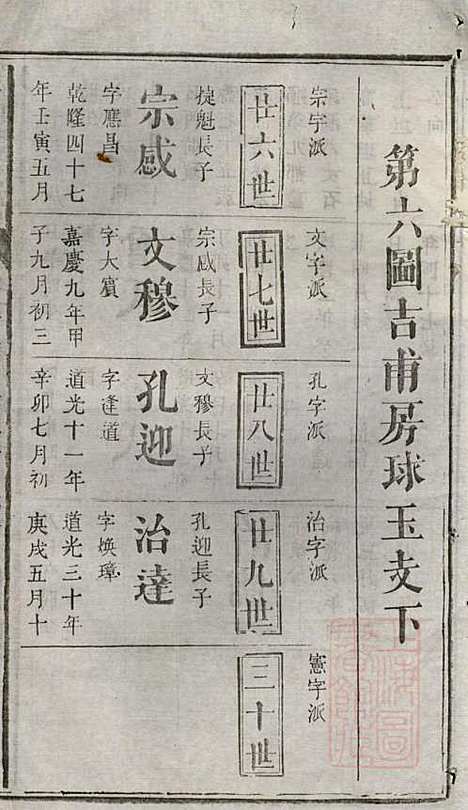 第六圖吉甫房球玉支下
宗字派
廿六世
㨗魁長子
宗感
字應昌
乾隆四十七
年壬寅五月
文字派
廿七世
宗感長子
文穆
字大賓
嘉慶九年甲
子九月初三
孔字派
廿八世
文穆長子
孔迎
字逢道
道光十一年
辛卯七月初
治字派
廿九世
孔迎長子
治達
字煥璋
道光三十年
庚戌五月十
憲字派
三十世